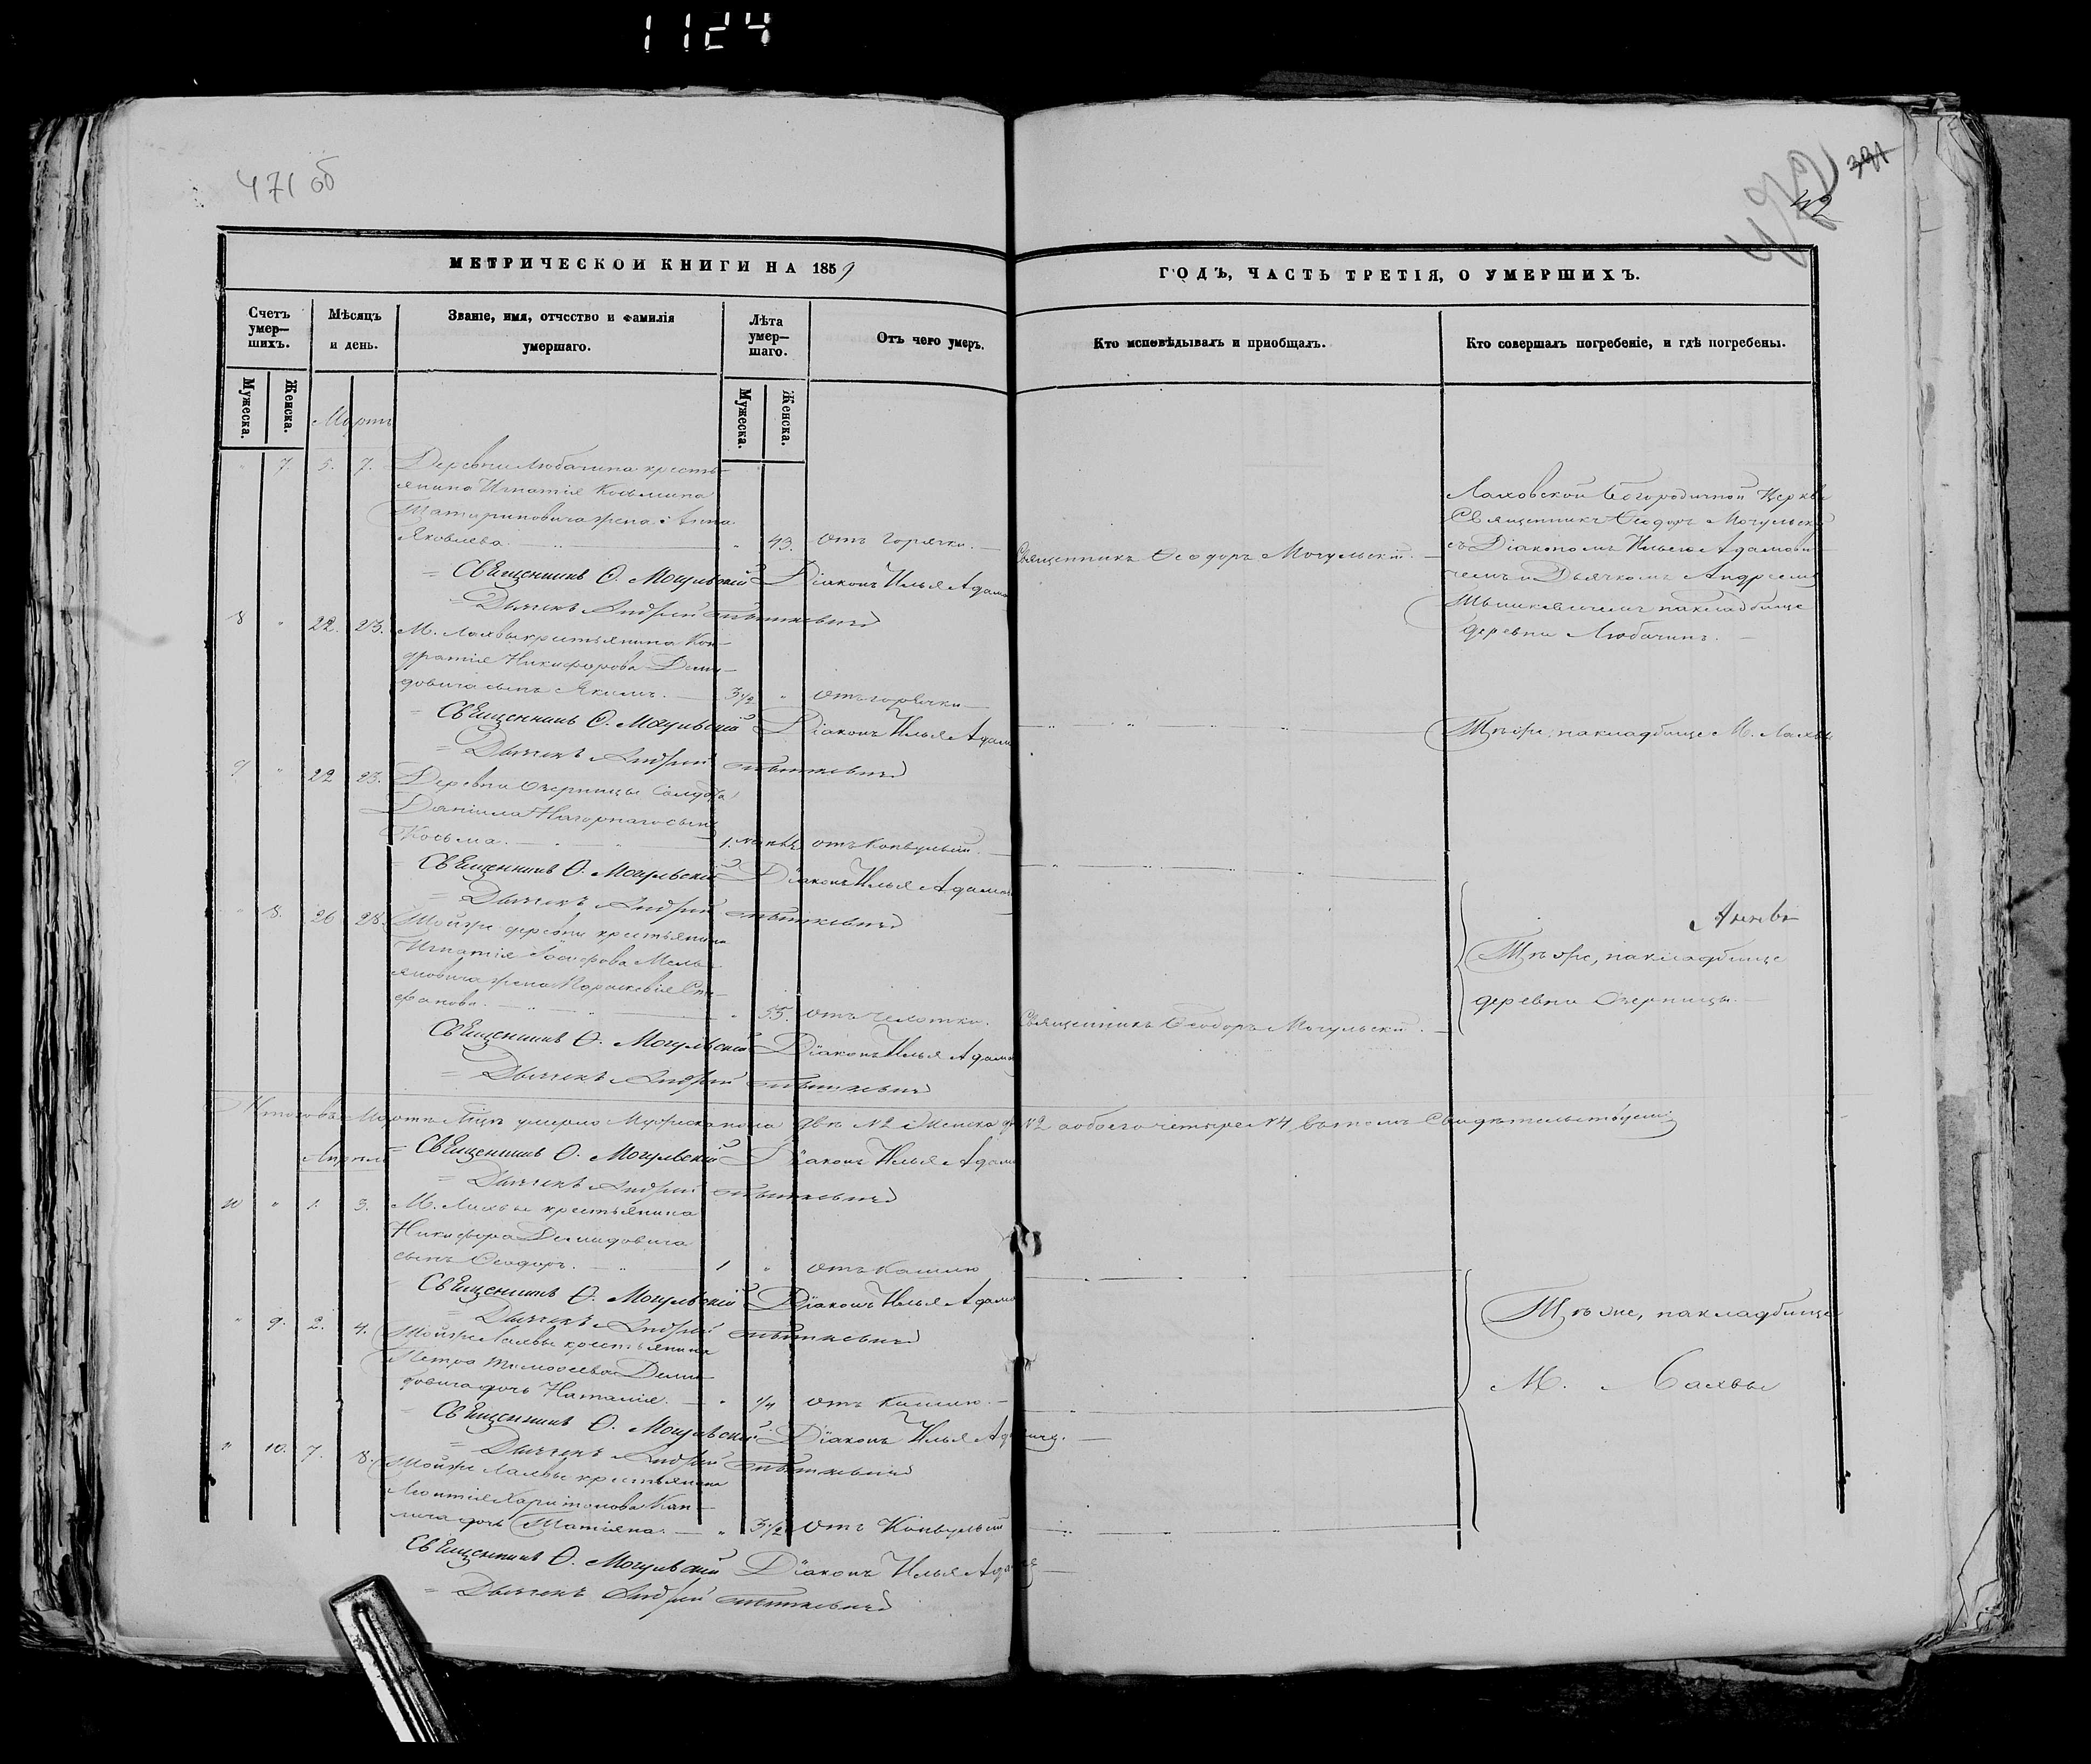 1124
471 об
391
42
МЕТРИЧЕСКОЙ КНИГИ НА 1859
ГОДЪ, ЧАСТЬ ТРЕТІЯ, О УМЕРШИХЪ.
Счетъ умер-
шихъ.
Мѣсяцъ
и день.
Званіе, имя, отчество и фамилія
умершаго.
Лѣта
умер-
шаго.
Отъ чего умеръ.
Кто исповѣдывалъ и пріобщалъ.
Кто совершалъ погребеніе, и гдѣ погребены.
Мужеска.
Женска.
Мужеска.
Женска.
Мартъ
7. 5. 7. Деревни Любачина кресть-
янина Игнатія Косьмина
жена Анна
Яковлева. 43. отъ горячки.
Священникъ Ѳеодоръ Могульскій.
Лаховской Богородичной Церкви
Священникъ Ѳеодоръ Могульскій
съ Діакономъ Ильею Адамови-
чемъ и Дьячкомъ Андреемъ
на кладбище
деревни Любачинъ.
Священникъ Ѳ. Могульскій Діаконъ Илья Адамо
Дьячекъ Андрей
8 " 22. 23. М. Лахвы крестьянина Кон-
дратія Никифорова Деми-
довича сынъ Якимъ. 3 1/2 " отъ горячки
Тѣже, на кладбище М. Лахвы
Священникъ Ѳ. Могульскій Діаконъ Илья Адамо
Дьячекъ Андрей
9 " 22 23. Деревни Озерницы Солдата
Даніила Нагорнаго сынъ
Косьма. 1. отъ Конвульсій.
Священникъ Ѳ. Могульскій Діаконъ Илья Адамо
Дьячекъ Андрей
" 8. 26 28. Тойже деревни крестьянина
Игнатія Іосифова Мель-
яновича жена Параскевія Сте-
фанова. " 55. отъ чахотки.
Священникъ Ѳеодоръ Могульскій.
Тѣже, на кладбище
деревни Озерницы.
Священникъ Ѳ. Могульскій Діаконъ Илья Адамо
Дьячекъ Андрей
Итого въ Мартѣ М-цѣ умерло Мужеска пола два №2 Женска два №2 а обоего четыре №4, въ томъ Свидѣтельствуемъ
Апрель
Священникъ Ѳ. Могульскій Діаконъ Илья Адамо
Дьячекъ Андрей
10 " 1. 3. М. Лахвы крестьянина
Никифора Демидовича
сынъ Ѳеодоръ. 1 " отъ Кашлю
Священникъ Ѳ. Могульскій Діаконъ Илья Адамо
Дьячекъ Андрей
Тѣже, на кладбище
М. Лахвы
" 9. 2. 4. Тойже Лахвы крестьянина
Петра Тимоѳеева Деми-
довича дочь Наталія. " 1/4 отъ Кашлю.
Священникъ Ѳ. Могульскій Діаконъ Илья
Дьячекъ Андрей
" 10. 7. 8. Тойже Лахвы крестьянина
Леонтія Харитонова
дочь Татіяна. " 3 1/2 отъ Конвульсій
Священникъ Ѳ. Могульскій Діаконъ Илья
Дьячекъ Андрей